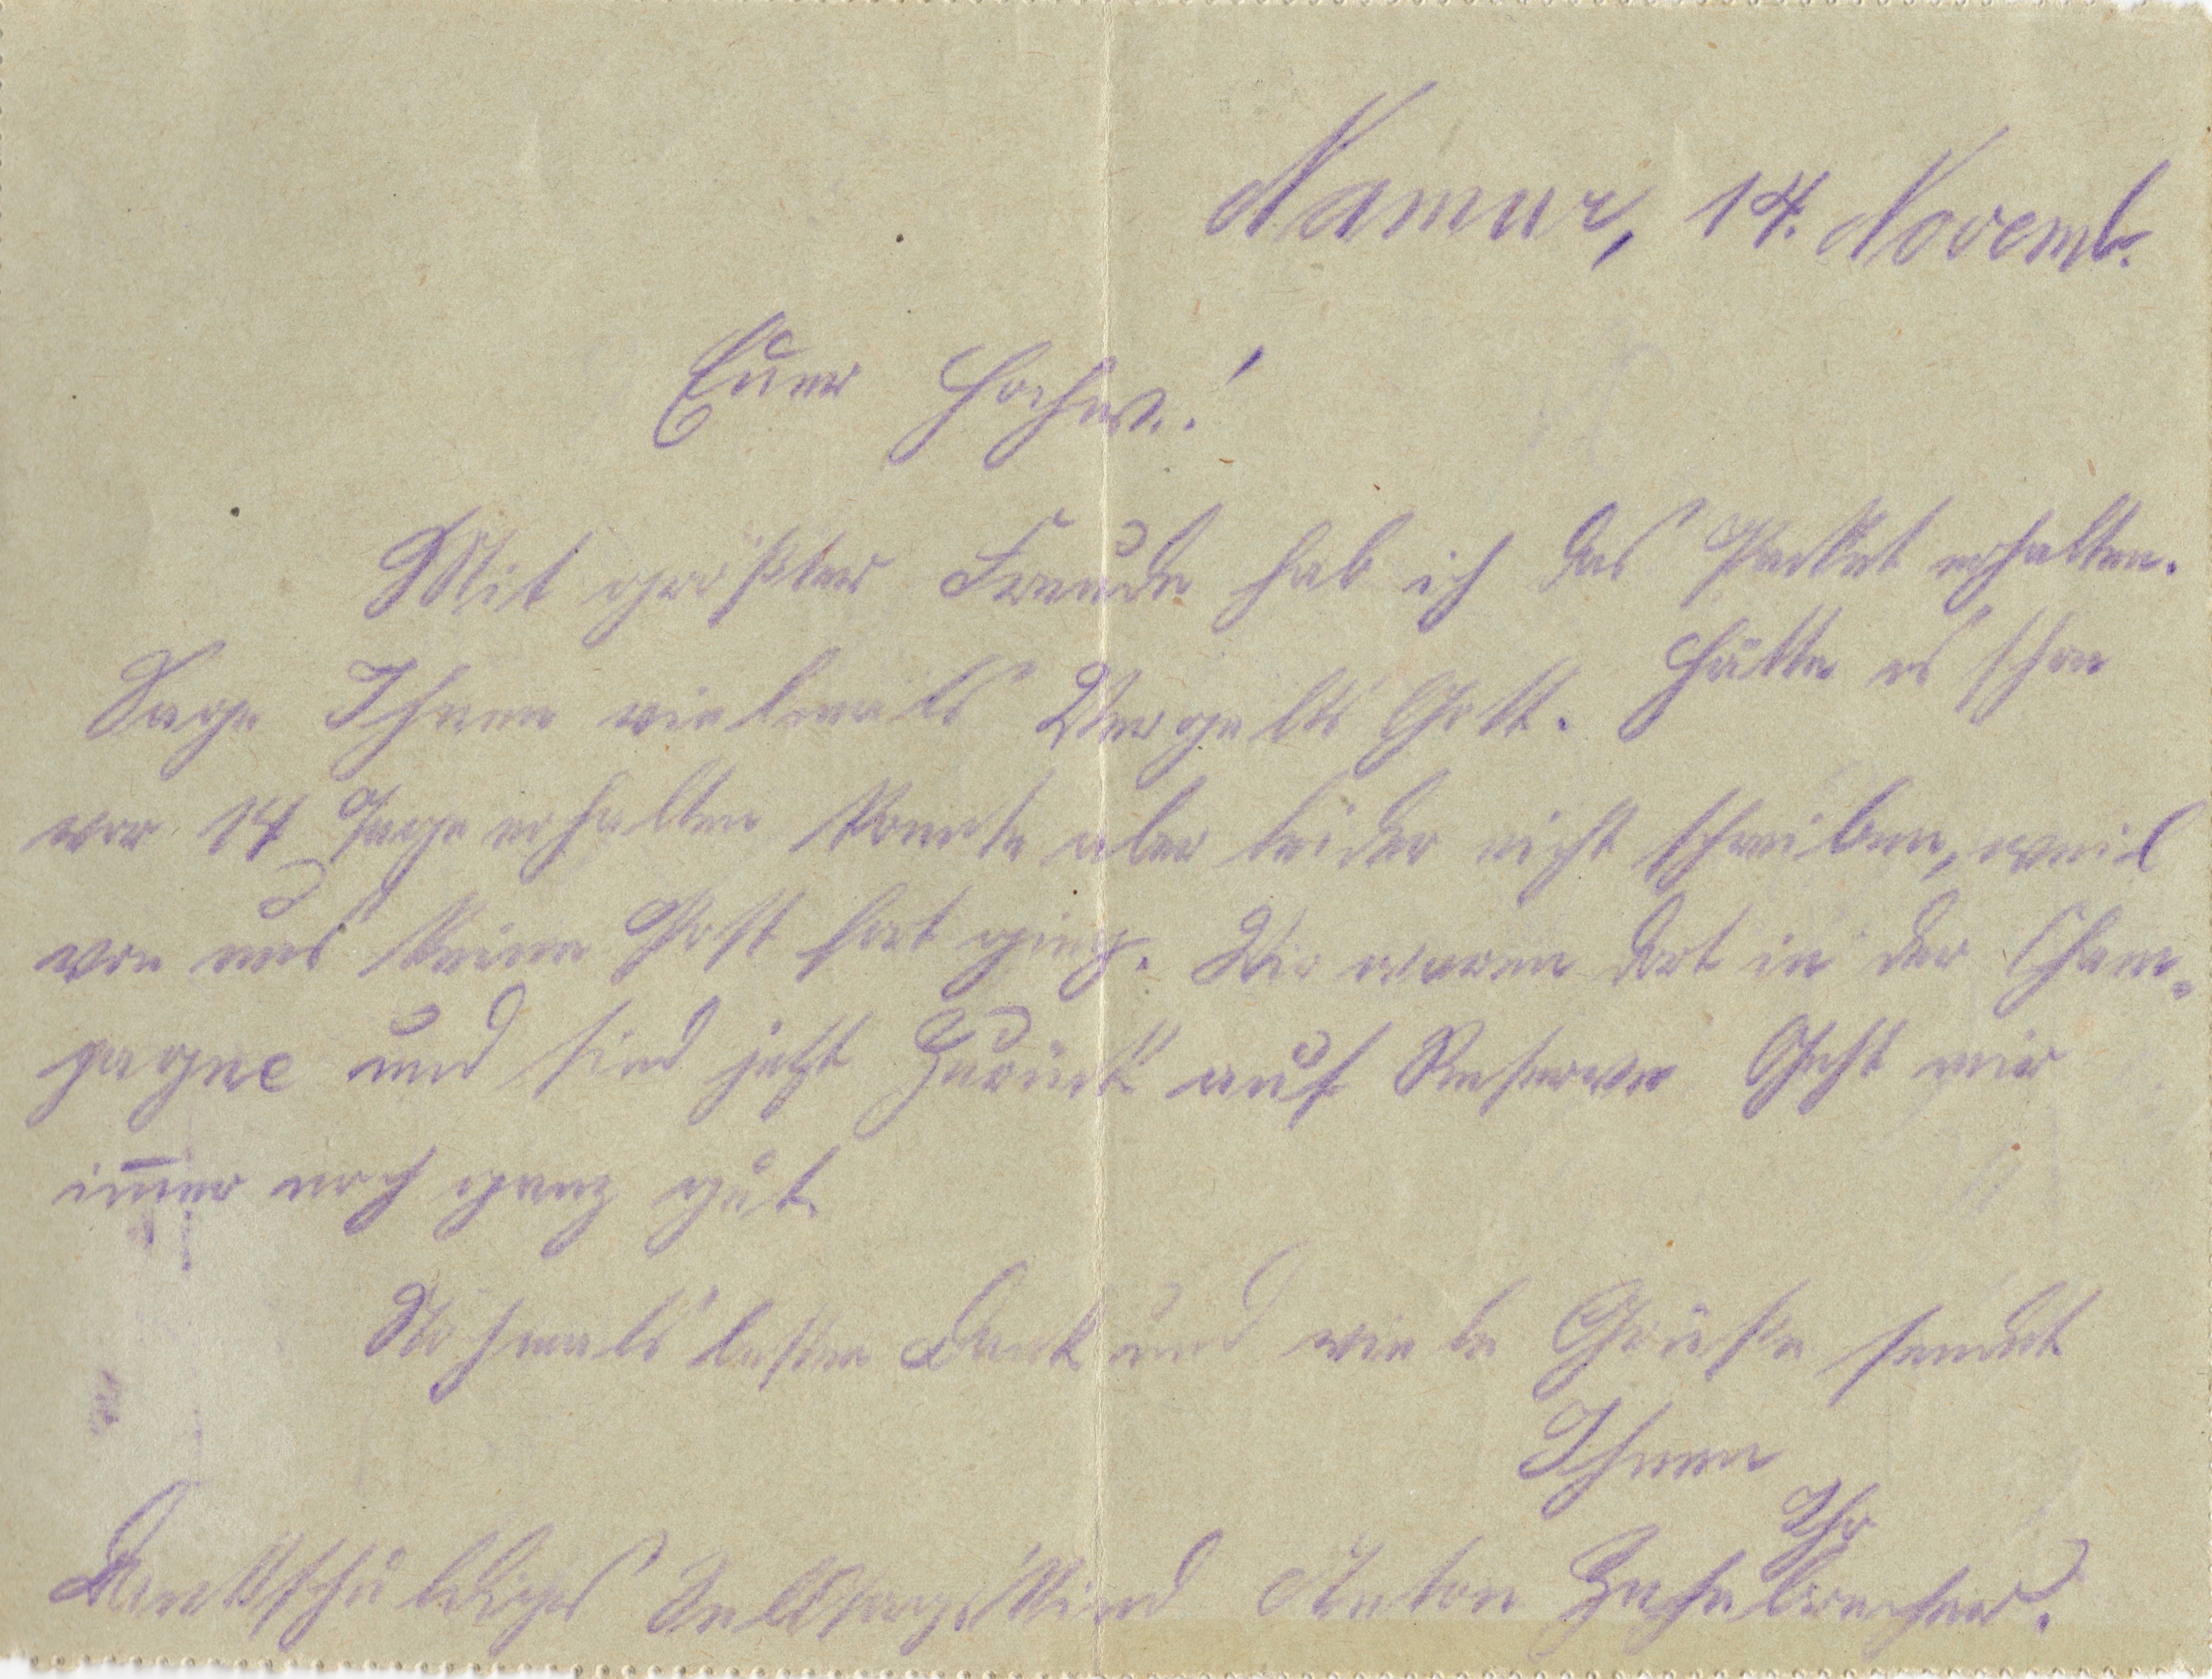 Namur, 14. Novemb.
Euer Hochw.!
Mit größter Freude hab ich das Packet erhalten.
Sage Ihnen vielmals Vergelts Gott. Hätte es schon
vor 14 Tage erhalten konnte aber leider nicht schreiben, weil
von uns keine Post fort ging. Wir waren dort in der Cham-
pagne und sind jetzt zurück auf Reserve Geht mir
im̅er noch ganz gut.
Nochmals besten Dank und viele Grüße sendet
Ihnen
Ihr
Dankschuldiges Anton